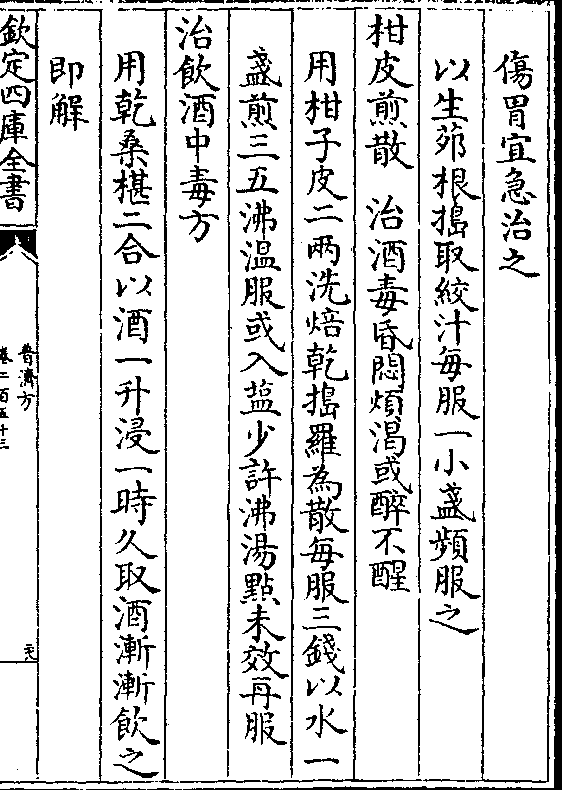 傷胃宜急治之
以生茆根搗取絞汁毎服一小盞頻服之
柑皮煎散　治酒毒昏悶煩渴或醉不醒
用柑子皮二兩洗焙乾搗羅為散毎服三錢以水一
盞煎三五沸温服或入鹽少許沸湯點未效再服
治飲酒中毒方
用乾桑椹二合以酒一升浸一時久取酒漸漸飲之
即解
欽定四庫全書
普濟方
卷二百五十三